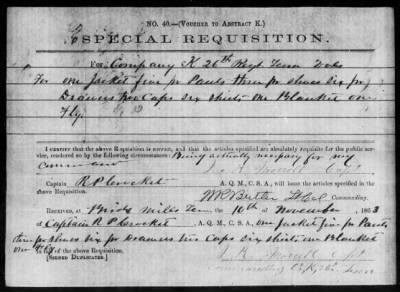 NO. 40.—(VOUCHER TO ABSTRACT K.)
SPECIAL REQUISITION.
For Company K 26th Regt Tenn Vols
For one Jacket five pr Pants three pr shoes six pr
Drawers two Caps six shirts one Blanket one
Fly.
I CERTIFY that the above Requisition is correct, and that the articles specified are absolutely requisite for the public
service, rendered so by the following circumstances: Being actually necessary for my
command
Capt
Captain R P Crocket A. Q. M., C. S. A., will issue the articles specified in the
above Requisition.
W R Butler Lt Col Commanding.
RECEIVED, at Birds Mills Ten the 16th of November 1863
of Captain R P Crocket A. Q. M., C. S. A., one Jacket five pr Pants
three pr shoes six pr Drawers two Caps six shirts one Blanket
one Fly in full of the above Requisition.
[SIGNED DUPLICATES.]
Capt
commanding Co K 26 Tenn